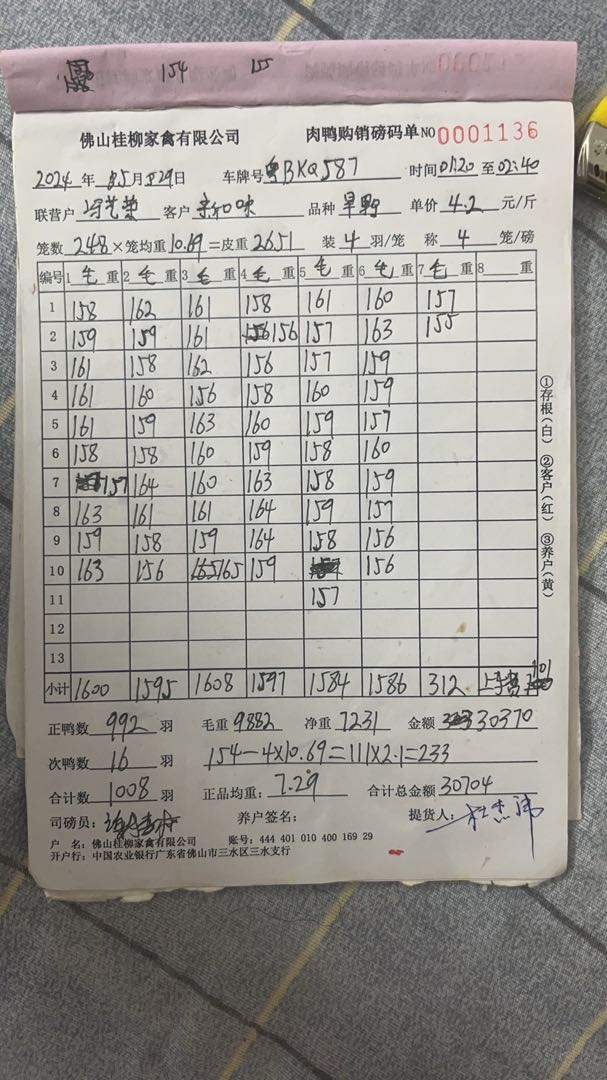 154 155
佛山桂柳家禽有限公司 肉鸭购销磅码单 NO 0001136
2024 年 5 月 29 日 车牌号 粤BKQ587 时间 01:20 至 02:40
联营户 客户 新和味 品种 早野 单价 4.2 元/斤
笼数 248 × 笼均重 10.69 = 皮重 2651 装 4 羽/笼 称 4 笼/磅
编号 1 毛 重 2 毛 重 3 毛 重 4 毛 重 5 毛 重 6 毛 重 7 毛 重 8 重
1 158 162 161 158 161 160 157
2 159 159 161 156 157 163 155
3 161 158 162 156 157 159
4 161 160 156 158 160 159
5 161 159 163 160 159 157
6 158 158 160 159 158 160
7 157 164 160 163 158 159
8 163 161 161 164 159 157
9 159 158 159 164 158 156
10 163 156 165 165 159 156
11 157
12
13
小计 1600 1595 1608 1597 1584 1586 312 上车费 101
正鸭数 992 羽 毛重 9882 净重 7231 金额 30370
次鸭数 16 羽 154-4×10.69=111×2.1=233
合计数 1008 羽 正品均重: 7.29 合计总金额 30704
司磅员: 养户签名: 提货人: 杜杰伟
户 名: 佛山桂柳家禽有限公司 账号: 444 401 010 400 169 29
开户行: 中国农业银行广东省佛山市三水区三水支行
①存根(白) ②客户(红) ③养户(黄)